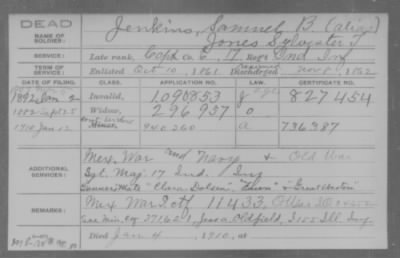 DEAD
NAME OF SOLDIER: Jenkins, Samuel B. (alias)
Jones Sylvester
SERVICE: Late rank, Capt Co. G, 17 Reg't Ind. Inf
TERM OF SERVICE: Enlisted Oct 10, 1861 Discharged Nov 8, 1862
DATE OF FILING. CLASS. APPLICATION NO. CERTIFICATE NO.
1892 Jan 2 Invalid, 1,090,853 827454
1882 Sept 25 Widow, 296,937 0
1910 Jan 12 Minor, 940,260 A 736,387
ADDITIONAL SERVICES: Mex. War and Navy & Old War
Sgt. Maj. 17 Ind. Inf
Gunners Mate "Clara Dolsen"
REMARKS: Mex War S. ctf 11433, Old War
See Min. ctf 271621, Jesse Oldfield, Ill. Inf
Died Jan 4, 1910, at